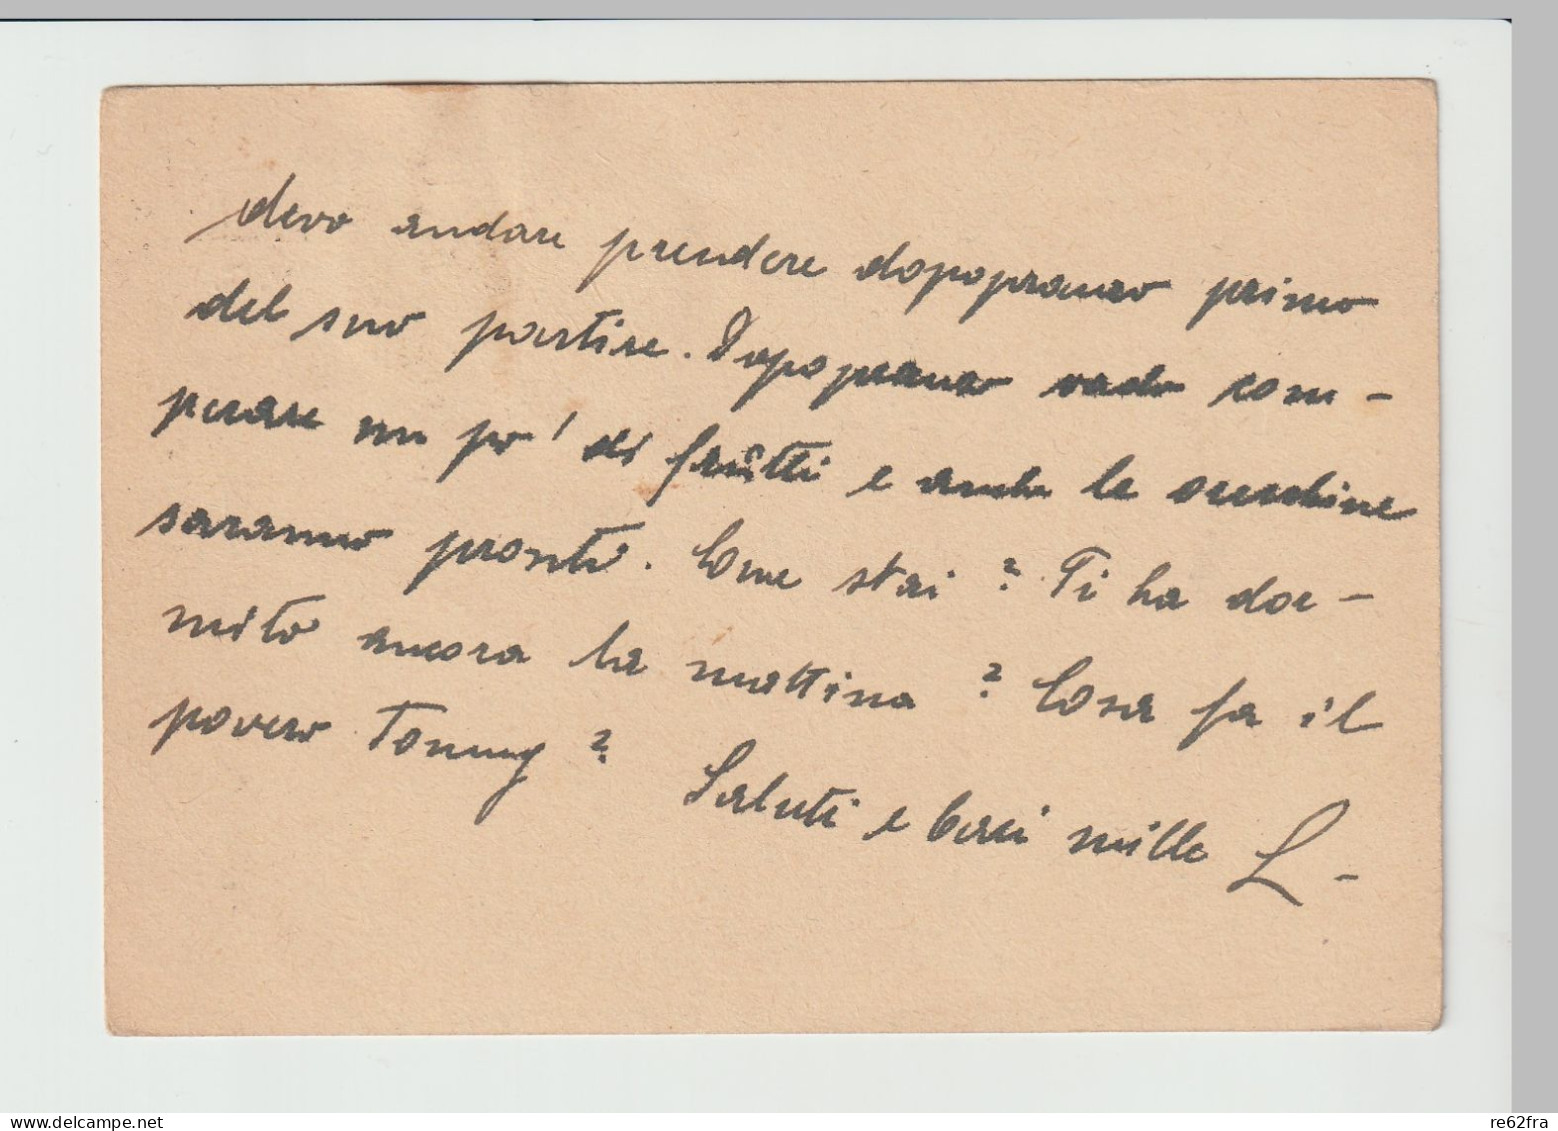 devo andare prendere dopopranzo primo
del suo partire. Dopopranzo vado com-
perare un po' di frutti e anche le
saranno pronti. Come stai? Ti ha dor-
mito ancora la mattina? Cosa fa il
povero Tommy? Saluti e baci mille L-
delcampe.net
re62fra